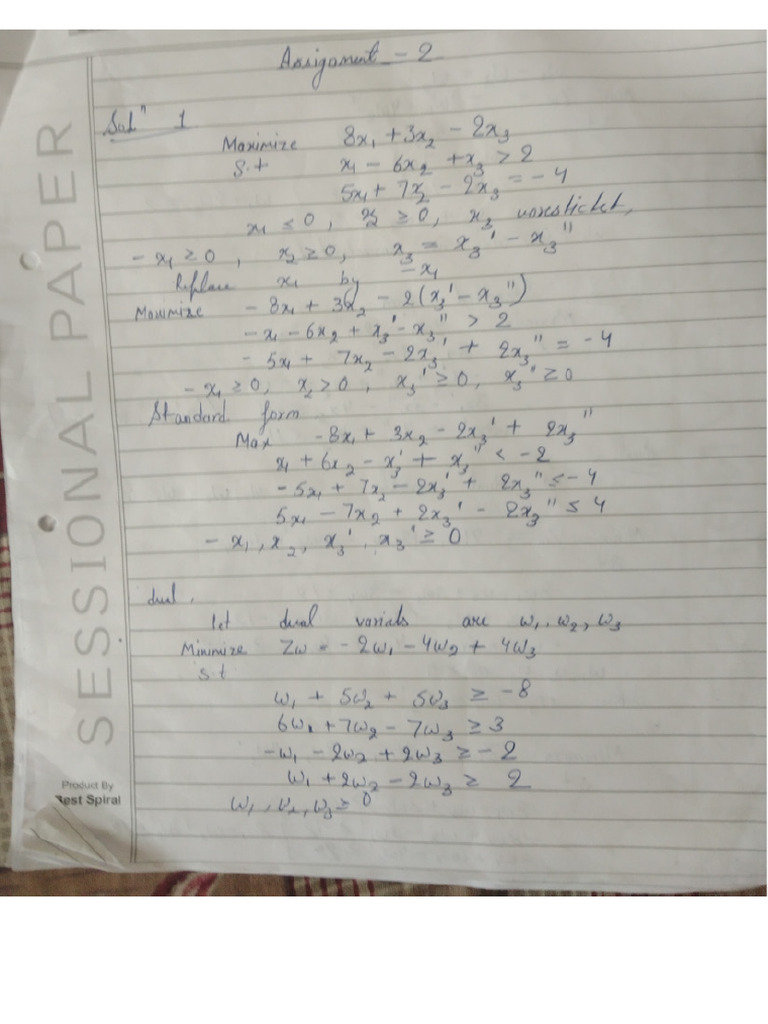 Assignment - 2
Solⁿ 1
Maximize 8x₁ + 3x₂ - 2x₃
S.t x₁ - 6x₂ + x₃ > 2
5x₁ + 7x₂ - 2x₃ = -4
x₁ ≤ 0, x₂ ≥ 0, x₃
- x₁ ≥ 0, x₂ ≥ 0, x₃ = x₃' - x₃''
Replace x₁ by -x₁
Maximize - 8x₁ + 3x₂ - 2(x₃' - x₃'')
-x₁ - 6x₂ + x₃' - x₃'' > 2
- 5x₁ + 7x₂ - 2x₃' + 2x₃'' = -4
- x₁ ≥ 0, x₂ > 0, x₃' ≥ 0, x₃'' ≥ 0
Standard form
Max -8x₁ + 3x₂ - 2x₃' + 2x₃''
x₁ + 6x₂ - x₃' + x₃'' < -2
-5x₁ + 7x₂ - 2x₃' + 2x₃'' ≤ -4
5x₁ - 7x₂ + 2x₃' - 2x₃'' ≤ 4
- x₁, x₂, x₃', x₃' ≥ 0
dul.
let dual varials are w₁, w₂, w₃
Minimize Zw = -2w₁ - 4w₂ + 4w₃
s.t
w₁ + 5w₂ + 5w₃ ≥ -8
6w₁ + 7w₂ - 7w₃ ≥ 3
-w₁ - 2w₂ + 2w₃ ≥ -2
w₁ + 2w₂ - 2w₃ ≥ 2
w₁, w₂, w₃ ≥ 0
SESSIONAL PAPER
Product By
Best Spiral